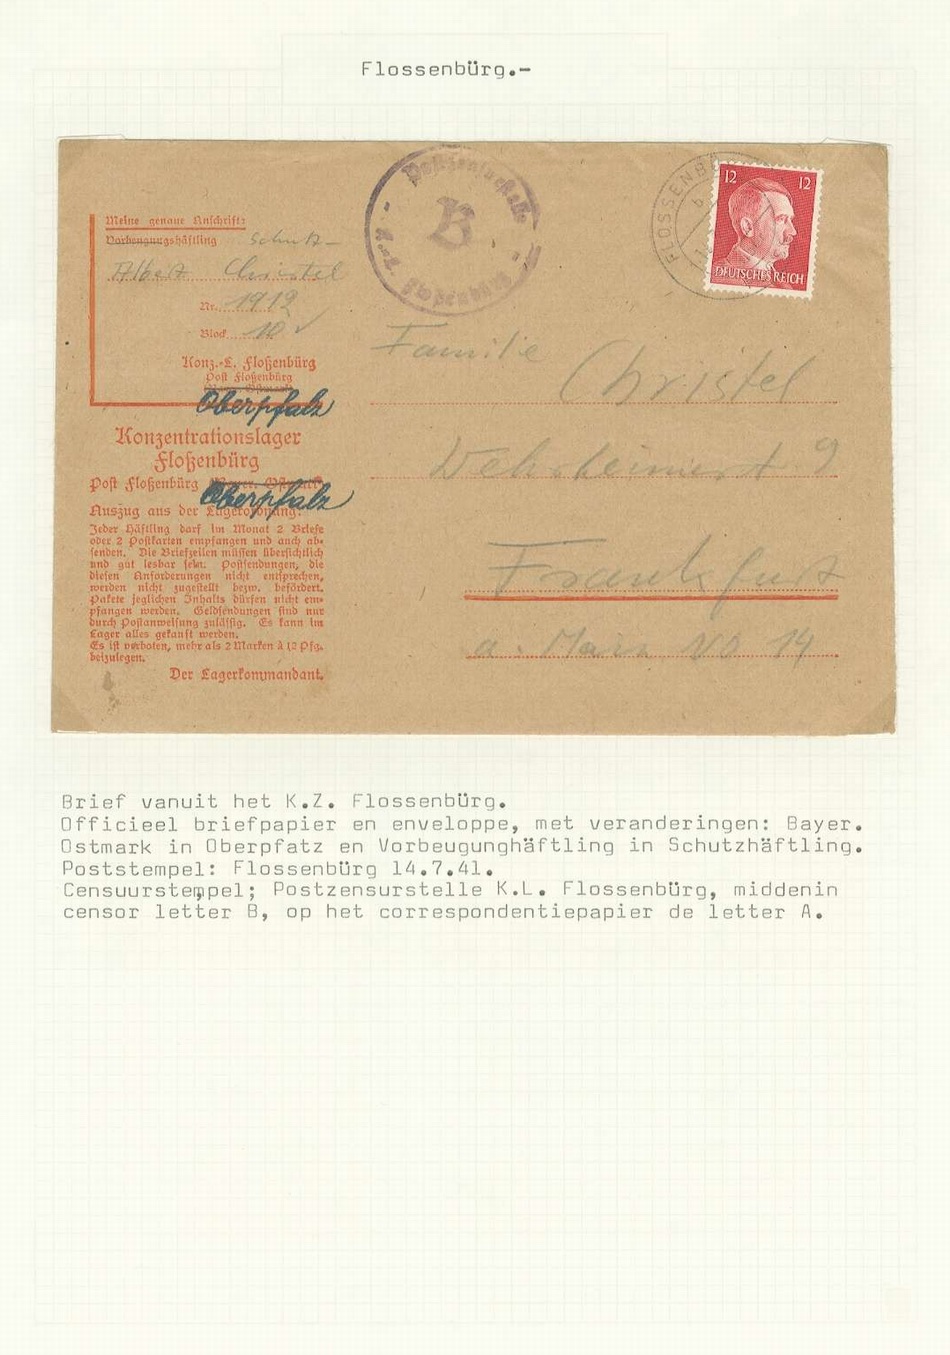 Flossenbürg.-
Postzensurstelle
B
K.L. Floßenbürg
FLOSSENBÜ
12 12
DEUTSCHES REICH
Meine genaue Anschrift:
Vorbeugungshäftling Schutz-
Albert Christel
Nr. 1912
Block 10
Konz.-L. Floßenbürg
Post Floßenbürg
Oberpfalz
Konzentrationslager
Floßenbürg
Post Floßenbürg Bayer. Ostmark
Oberpfalz
Auszug aus der Lagerordnung:
Jeder Häftling darf im Monat 2 Briefe
oder 2 Postkarten empfangen und auch ab-
senden. Die Briefzeilen müssen übersichtlich
und gut lesbar sein. Postsendungen, die
diesen Anforderungen nicht entsprechen,
werden nicht zugestellt bezw. befördert.
Pakete jeglichen Inhalts dürfen nicht em-
pfangen werden. Geldsendungen sind nur
durch Postanweisung zulässig. Es kann im
Lager alles gekauft werden.
Es ist verboten, mehr als 2 Marken à 12 Pfg.
beizulegen.
Der Lagerkommandant.
Familie
Christel
9
Frankfurt
a. Main NO 14
Brief vanuit het K.Z. Flossenbürg.
Officieel briefpapier en enveloppe, met veranderingen: Bayer.
Ostmark in Oberpfatz en Vorbeugunghäftling in Schutzhäftling.
Poststempel: Flossenbürg 14.7.41.
Censuurstempel; Postzensurstelle K.L. Flossenbürg, middenin
censor letter B, op het correspondentiepapier de letter A.